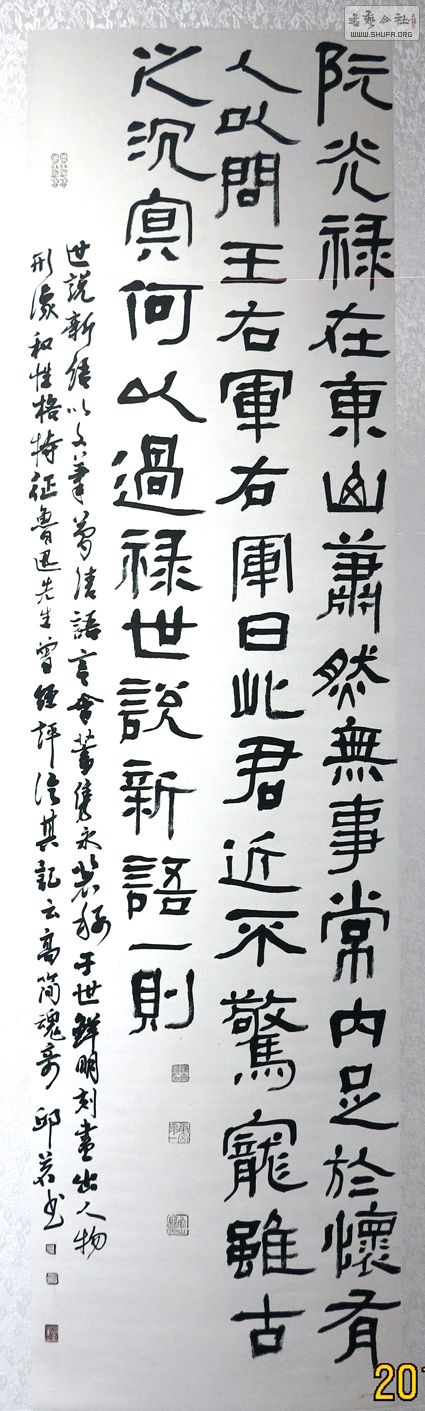 書藝公社
WWW.SHUFA.ORG
阮光禄在東山蕭然無事常内足於懷有
人以問王右軍右軍曰此君近不驚寵雖古
之沉冥何以過禄世説新語一則
世説新語以文筆簡潔語言含蓄雋永著称于世鮮明刻畫出人物
形像和性格特征魯迅先生曾經評論其記云高簡魂奇 邱
201